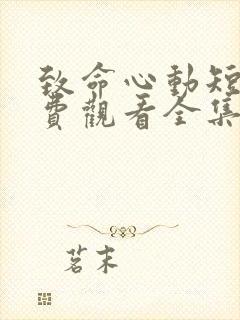 致命心動短
費觀看全集
茗末